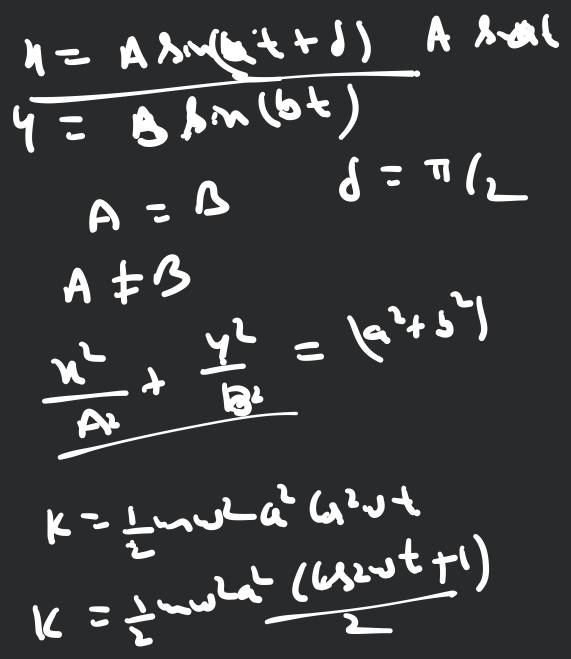 x = A sin(at + δ)   A
y = B sin(bt)
A = B   δ = π/2
A ≠ B
x²/A² + y²/B² = (a² + b²)
K = 1/2 mω²a² cos²ωt
K = 1/2 mω²a² (cos2ωt + 1)/2